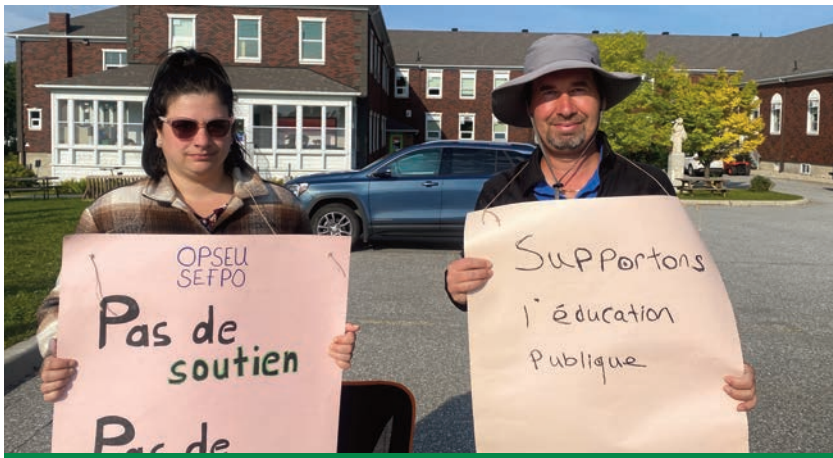 OPSEU
SEFPO
Pas de
soutien
Pas de
Supportons
l'éducation
Publique